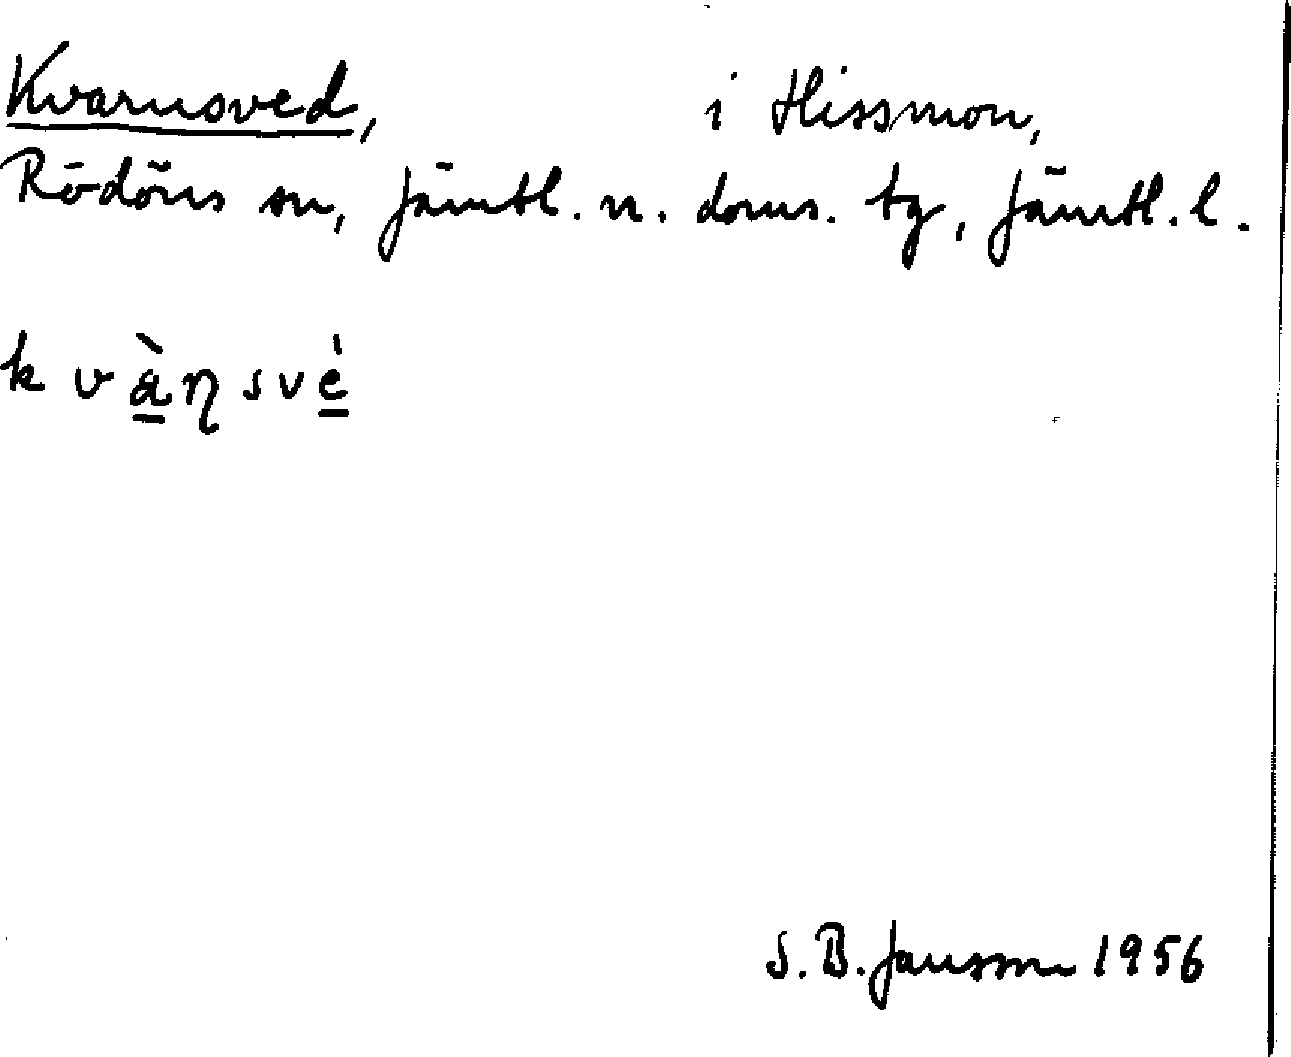 Kvarnsved, i Hissmon,
Rödöns sn, Jämtl. n. doms. tg, Jämtl. l.
k v à̱ ŋ s v é̱
S. B. Jansson 1956